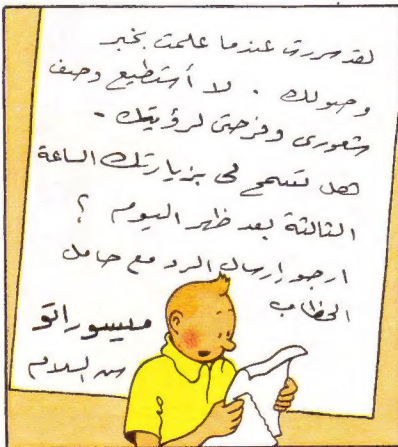 لقد سررت عندما علمت بخبر
وصولك . لا أستطيع وصف
شعورى وفرحتى لرؤيتك .
هل تسمح لى بزيارتك الساعة
الثالثة بعد ظهر اليوم ؟
ارجو إرسال الرد مع حامل
الخطاب
ميسوراتو
سن السلام